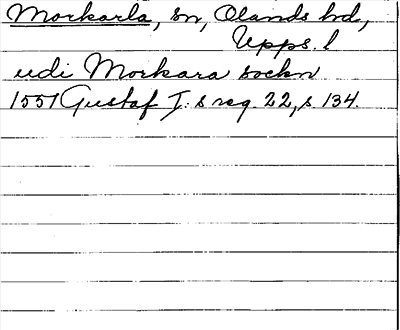 Morkarla, sn, Olands hd,
Upps. l
udi Morkara sockn
1551 Gustaf I:s reg. 22, s. 134.